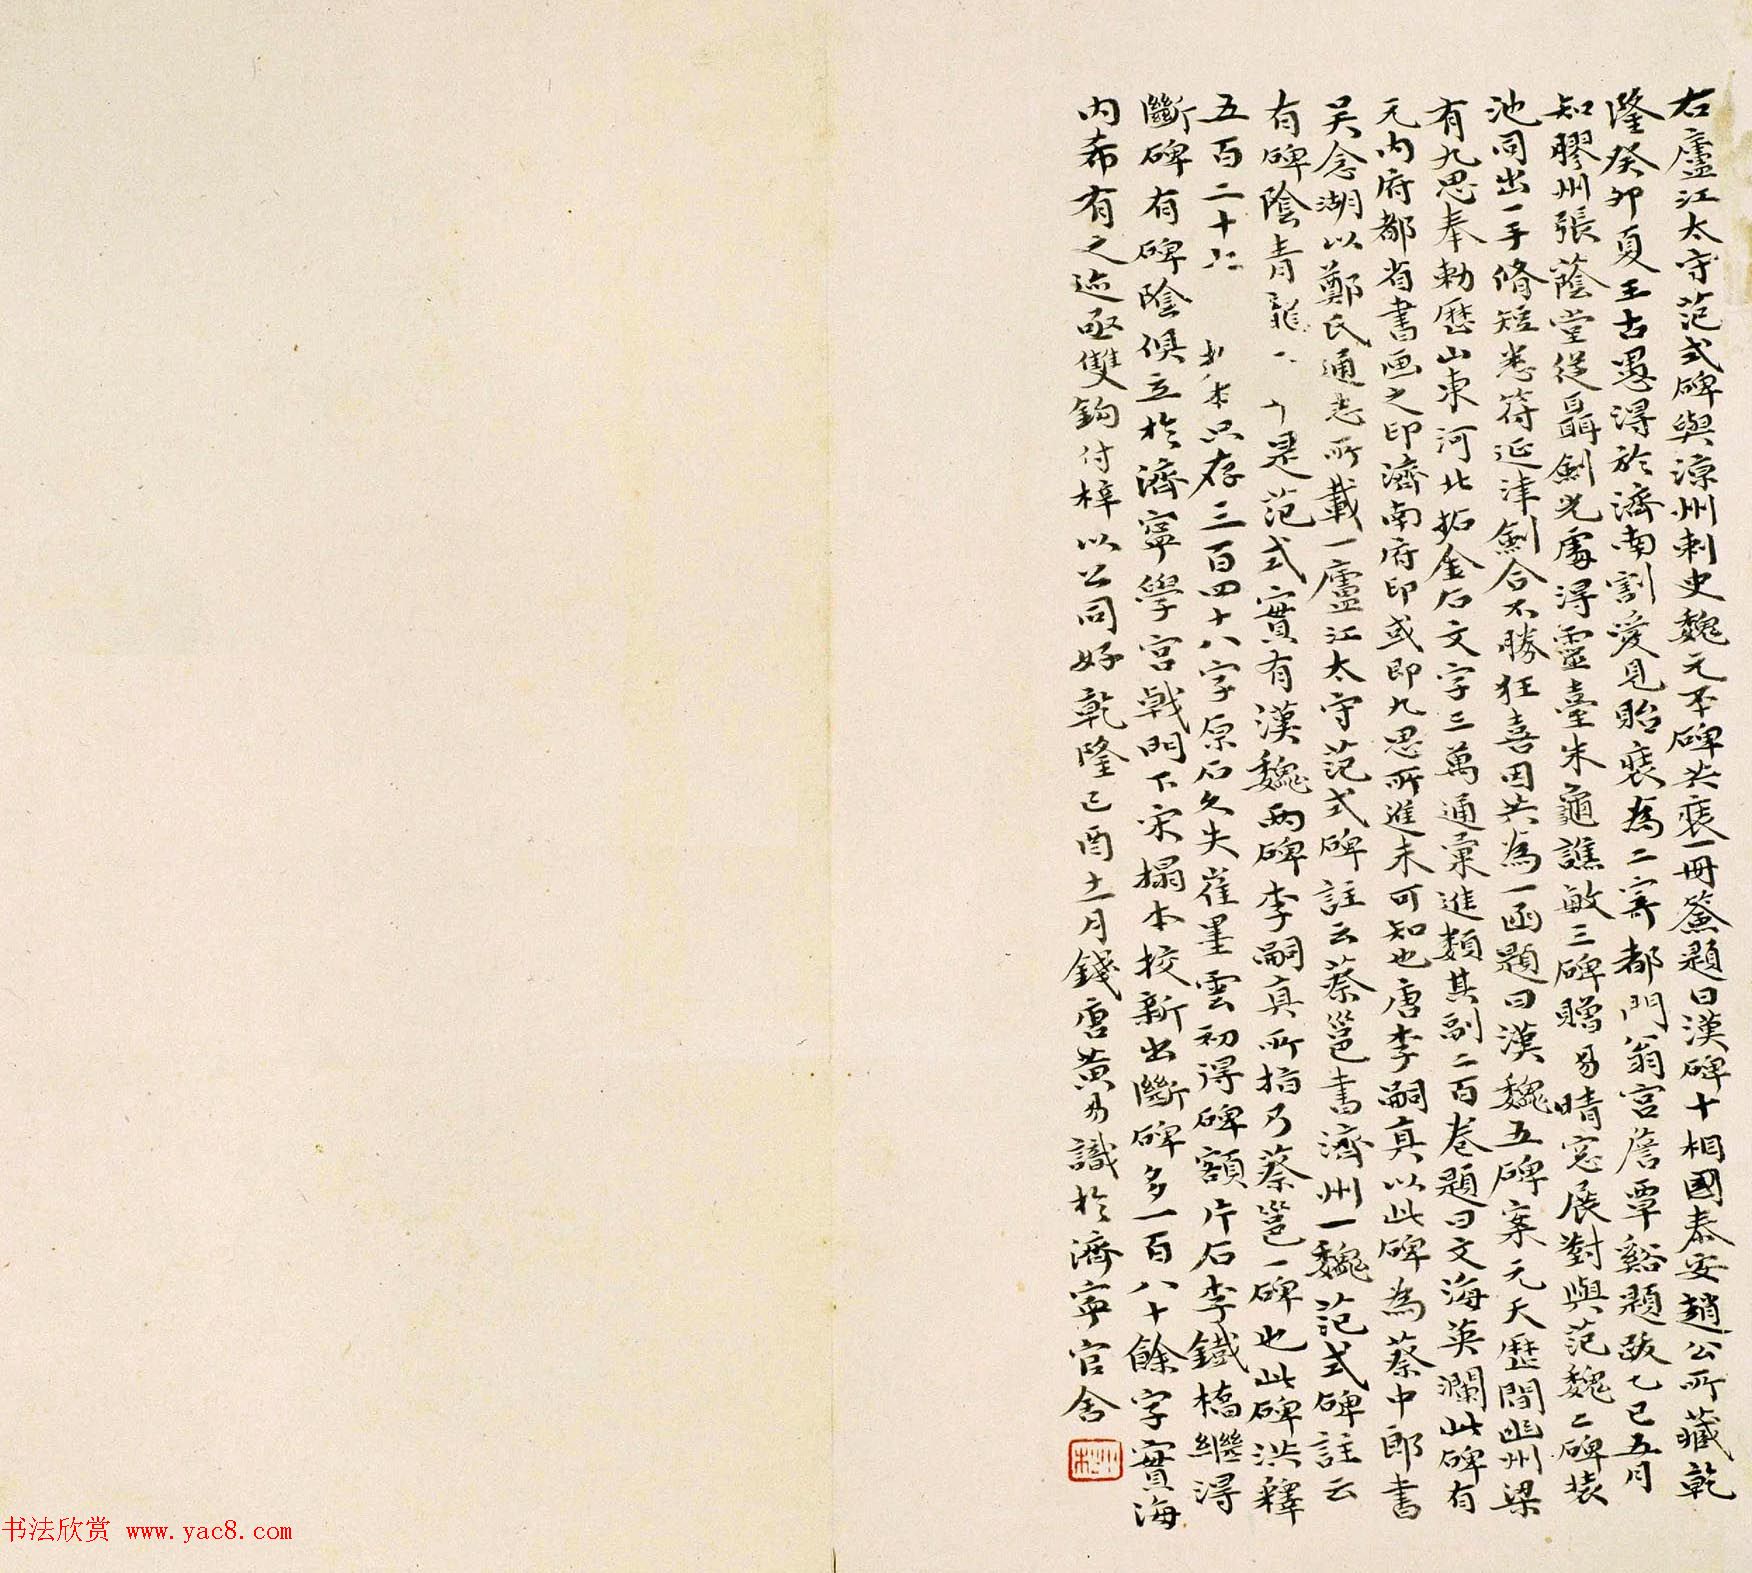 右廬江太守范式碑與涼州刺史魏元丕碑共裝一冊簽題曰漢碑十相國泰安趙公所藏乾
隆癸卯夏王古愚得於濟南割愛見貽裝為二寄都門翁宮詹覃谿題跋乙巳五月
知膠州張蔭堂從聶劍光處得靈臺朱龜譙敏三碑贈易晴窓展對與范魏二碑裝
池同出一手脩短悉符延津劍合不勝狂喜因共為一函題曰漢魏五碑案元天歷間幽州梁
有九思奉勅歷山東河北拓金石文字三萬通彙進類其副二百卷題曰文海英瀾此碑有
元內府都省書画之印濟南府印或即九思所進未可知也唐李嗣真以此碑為蔡中郎書
吴念湖以鄭氏通志所載一廬江太守范式碑註云蔡邕書濟州一魏范式碑註云
有碑陰青龍 是范式實有漢魏兩碑李嗣真所指乃蔡邕一碑也此碑洪釋
五百二十 本只存三百四十八字原石久失崔墨雲初得碑額片石李鐵橋繼得
斷碑有碑陰俱立於濟寧學宮戟門下宋搨本挍新出斷碑多一百八十餘字實海
內希有之迹亟雙鉤付梓以公同好乾隆己酉十一月錢唐黃易識於濟寧官舍
书法欣赏 www.yac8.com